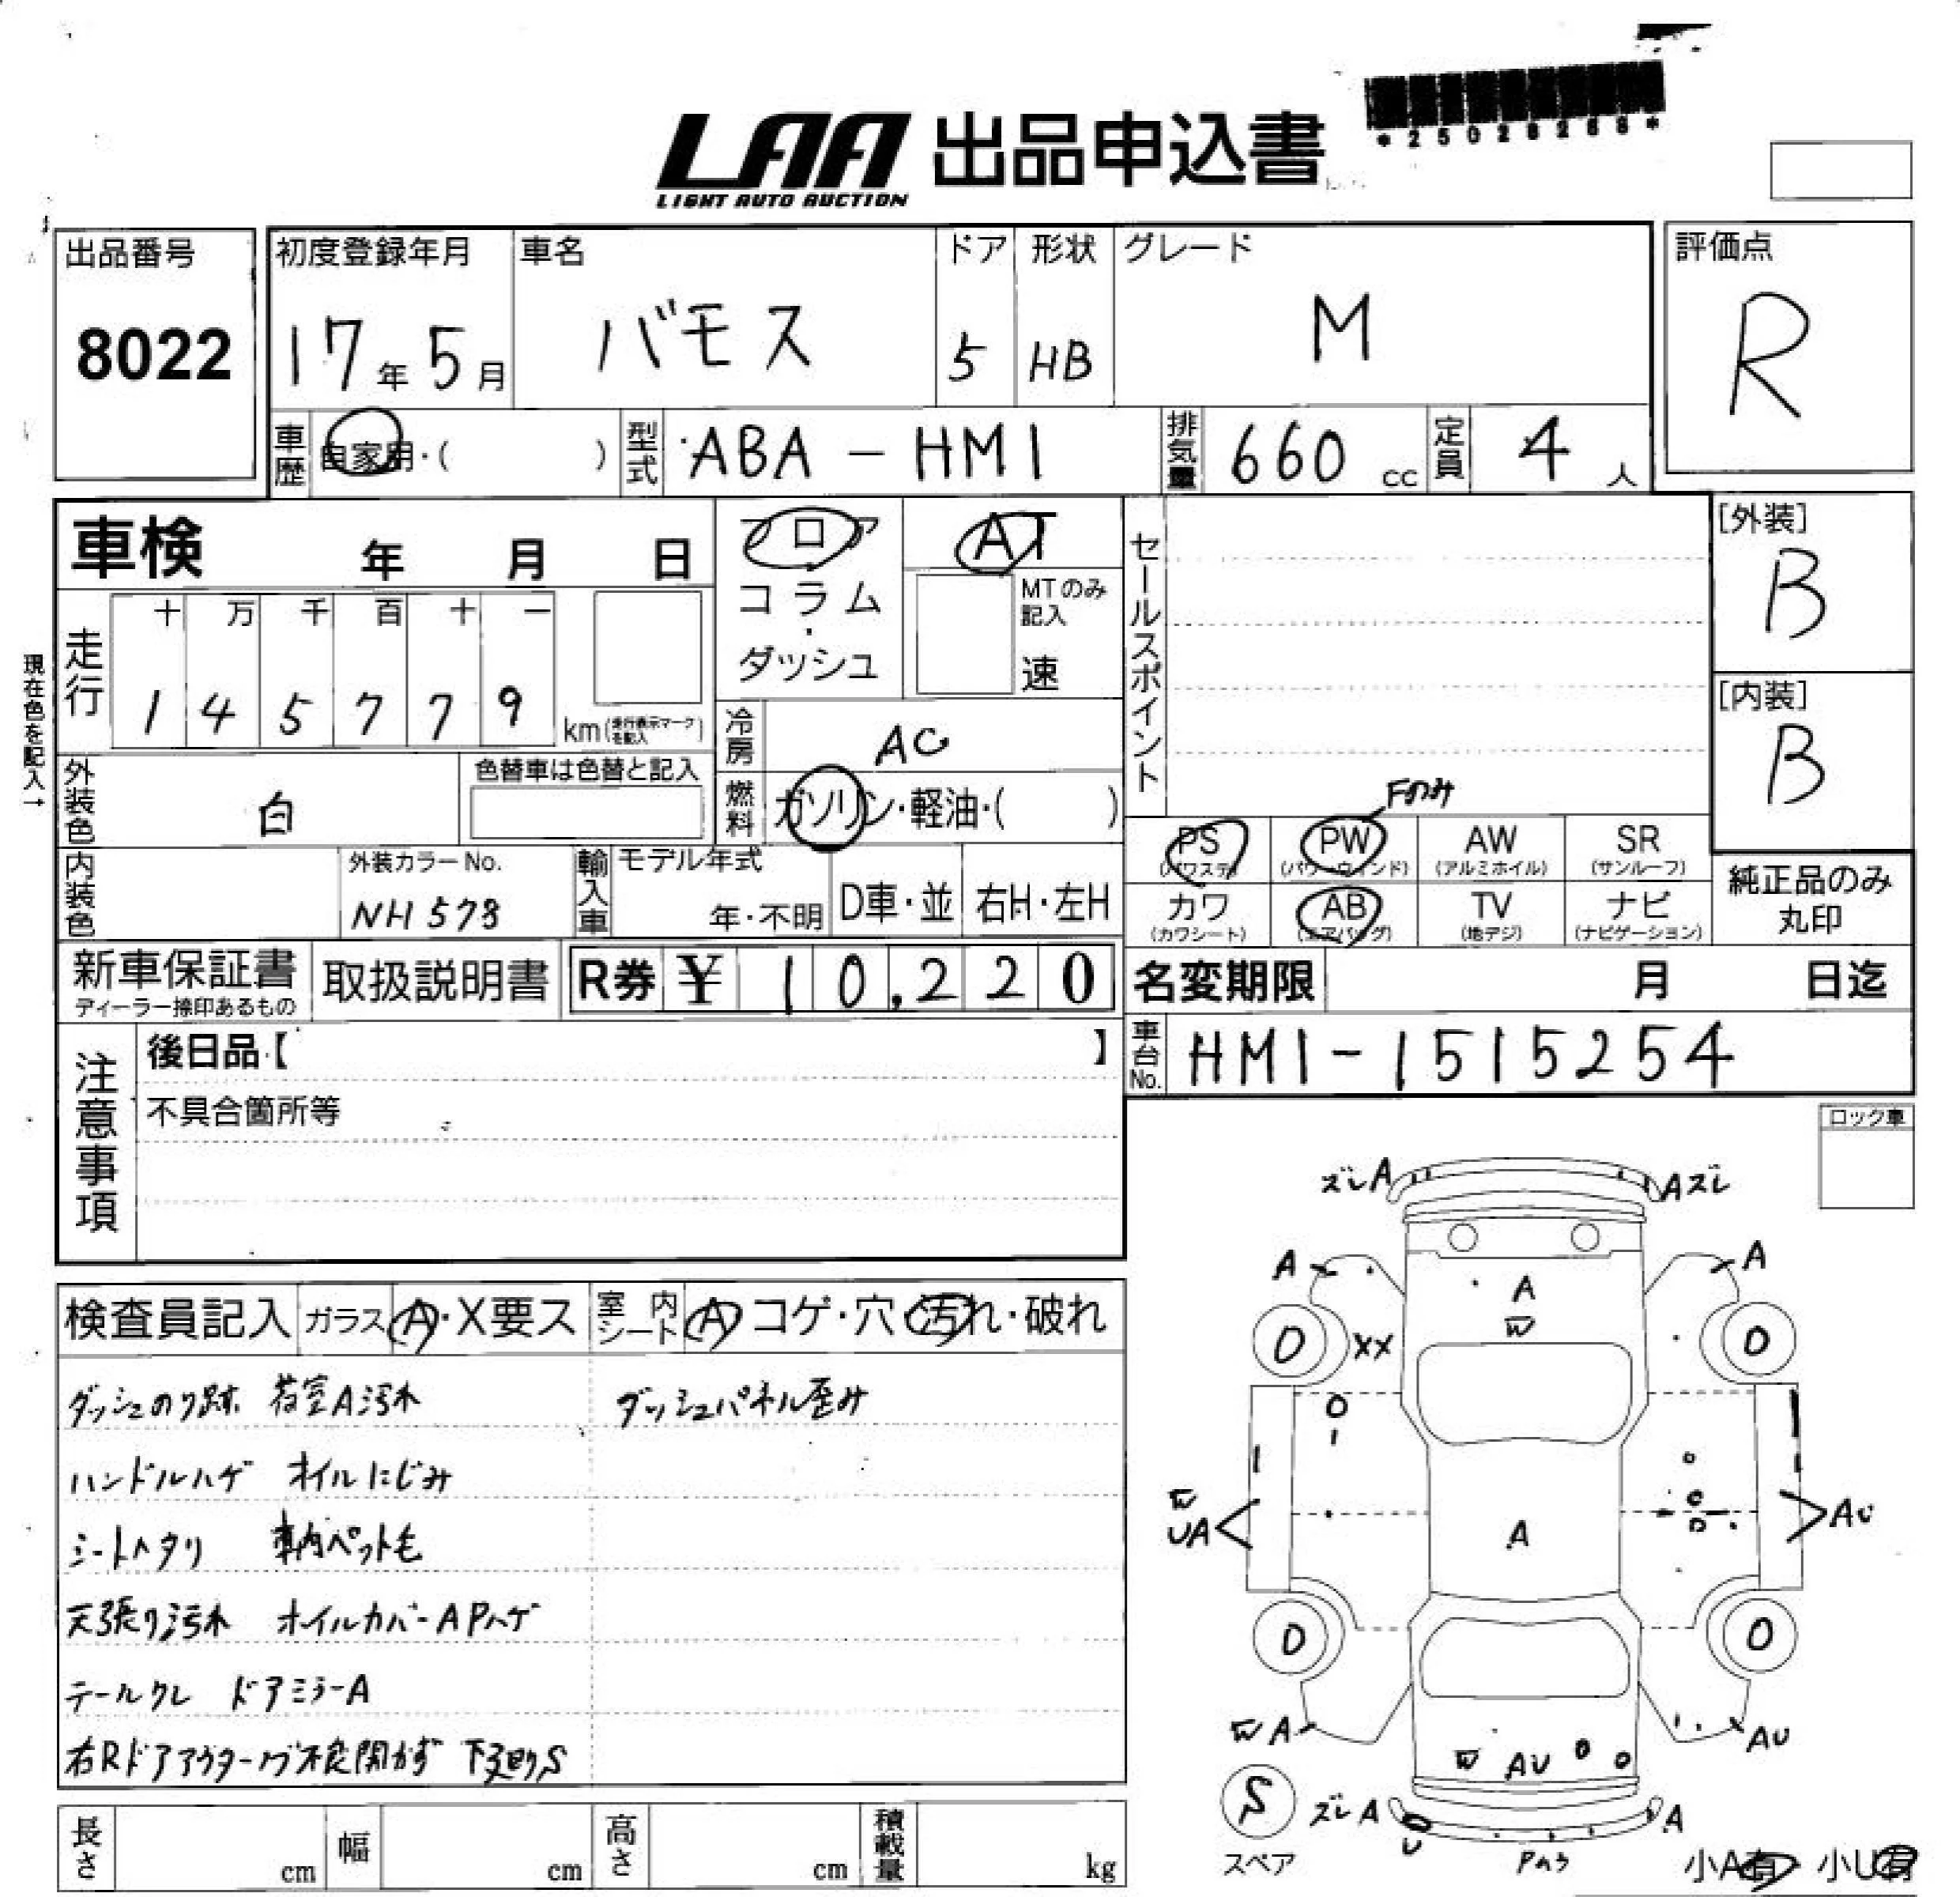 *25028268*
LAA 出品申込書
LIGHT AUTO AUCTION
出品番号
8022
初度登録年月
17年5月
車名
バモス
ドア
5
形状
HB
グレード
M
評価点
R
車歴
自家用・( )
型式
ABA-HM1
排気量
660 cc
定員
4 人
車検 年 月 日
フロア
コラム
・
ダッシュ
AT
MTのみ
記入
速
セールスポイント
[外装]
B
[内装]
B
現在色を記入→
走行
十 万 千 百 十 一
1 4 5 7 7 9
km(走行表示マークを記入)
冷房
AC
外装色
白
色替車は色替と記入
燃料
ガソリン・軽油・( )
Fのみ
PS
(パワステ)
PW
(パワーウィンド)
AW
(アルミホイル)
SR
(サンルーフ)
カワ
(カワシート)
AB
(エアバッグ)
TV
(地デジ)
ナビ
(ナビゲーション)
純正品のみ
丸印
内装色
外装カラーNo.
NH578
輸入車
モデル年式
年・不明
D車・並
右H・左H
新車保証書
ディーラー捺印あるもの
取扱説明書
R券 ¥ 10,220
名変期限 月 日迄
車台No.
HM1-1515254
注意事項
後日品【 】
不具合箇所等
ロック車
検査員記入
ガラス
A・X要ス
室内シート
A コゲ・穴・汚れ・破れ
ダッシュのり跡 荷室A汚れ
ダッシュパネル歪み
ハンドルハゲ オイルにじみ
シートヘタリ 車内ペット毛
天張り汚れ オイルカバーAPハゲ
テールクレ ドアミラーA
右Rドアアウターノブ不良開かず 下廻りS
ズレA
Aズレ
A
A
A
W
XX
W
UA
A
AU
WA
W AU
AU
S
スペア
ズレA
U
A
Pハゲ
小A有 小U有
長さ
cm
幅
cm
高さ
cm
積載量
kg